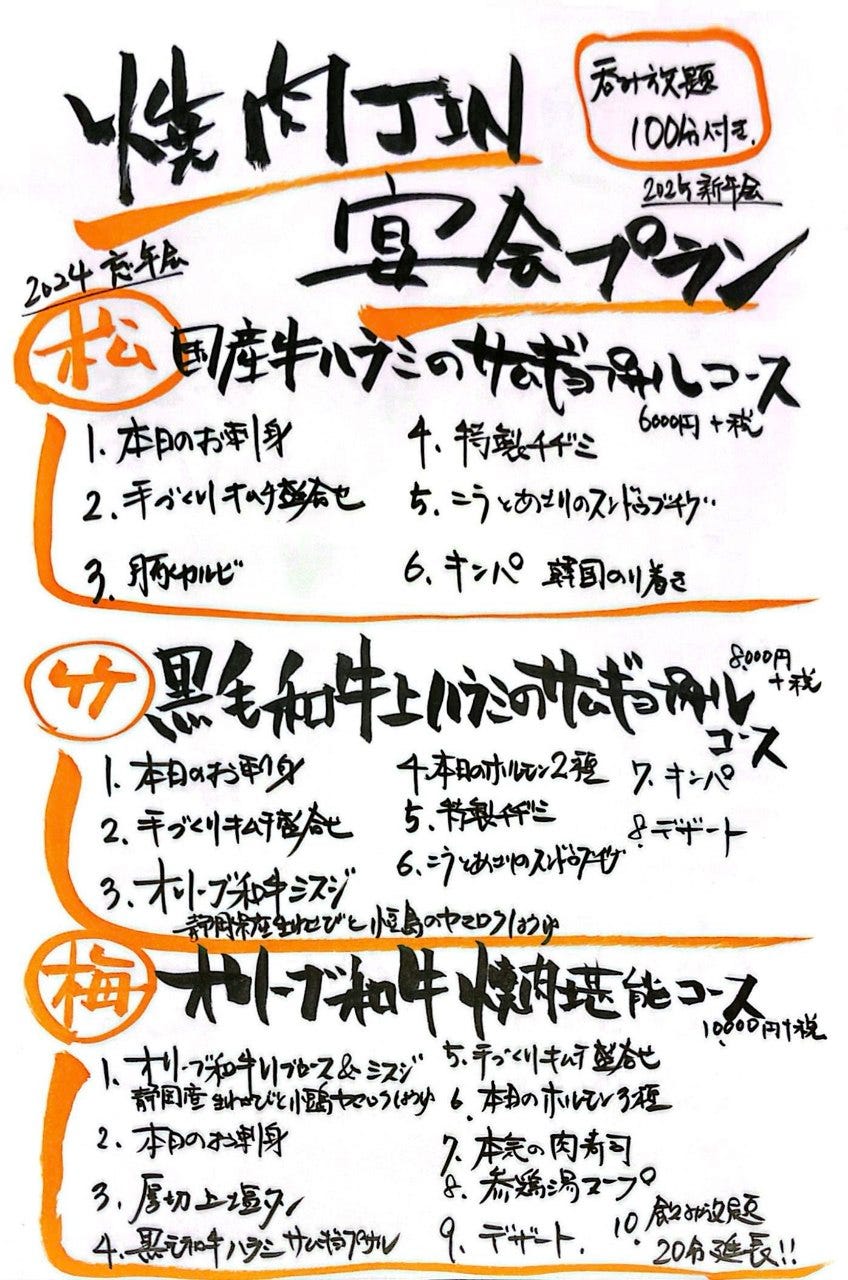 焼肉JIN
呑み放題
100分付き.
2025新年会
宴会プラン
2024忘年会
松 国産牛ハラミのサムギョプサルコース
6000円+税
1. 本日のお刺身
2. 手づくりキムチ盛合せ
3. 豚カルビ
4. 特製チヂミ
5. ニラとあさりのスンドゥブチゲ
6. キンパ 韓国のり巻き
竹 黒毛和牛上ハラミのサムギョプサル
コース
8000円
+税
1. 本日のお刺身
2. 手づくりキムチ盛合せ
3. オリーブ和牛ミスジ
静岡県産生わさびと小豆島のヤマロクしょうゆ
4. 本日のホルモン2種
5. 特製チヂミ
6. ニラとあさりのスンドゥブチゲ
7. キンパ
8. デザート
梅 オリーブ和牛焼肉堪能コース
10,000円+税
1. オリーブ和牛リブロース&ミスジ
静岡産生わさびと小豆島ヤマロクしょうゆ
2. 本日のお刺身
3. 厚切上塩タン
4. 黒毛和牛ハラミサムギョプサル
5. 手づくりキムチ盛合せ
6. 本日のホルモン3種
7. 本気の肉寿司
8. 参鶏湯スープ
9. デザート.
10. 飲み放題
20分延長!!